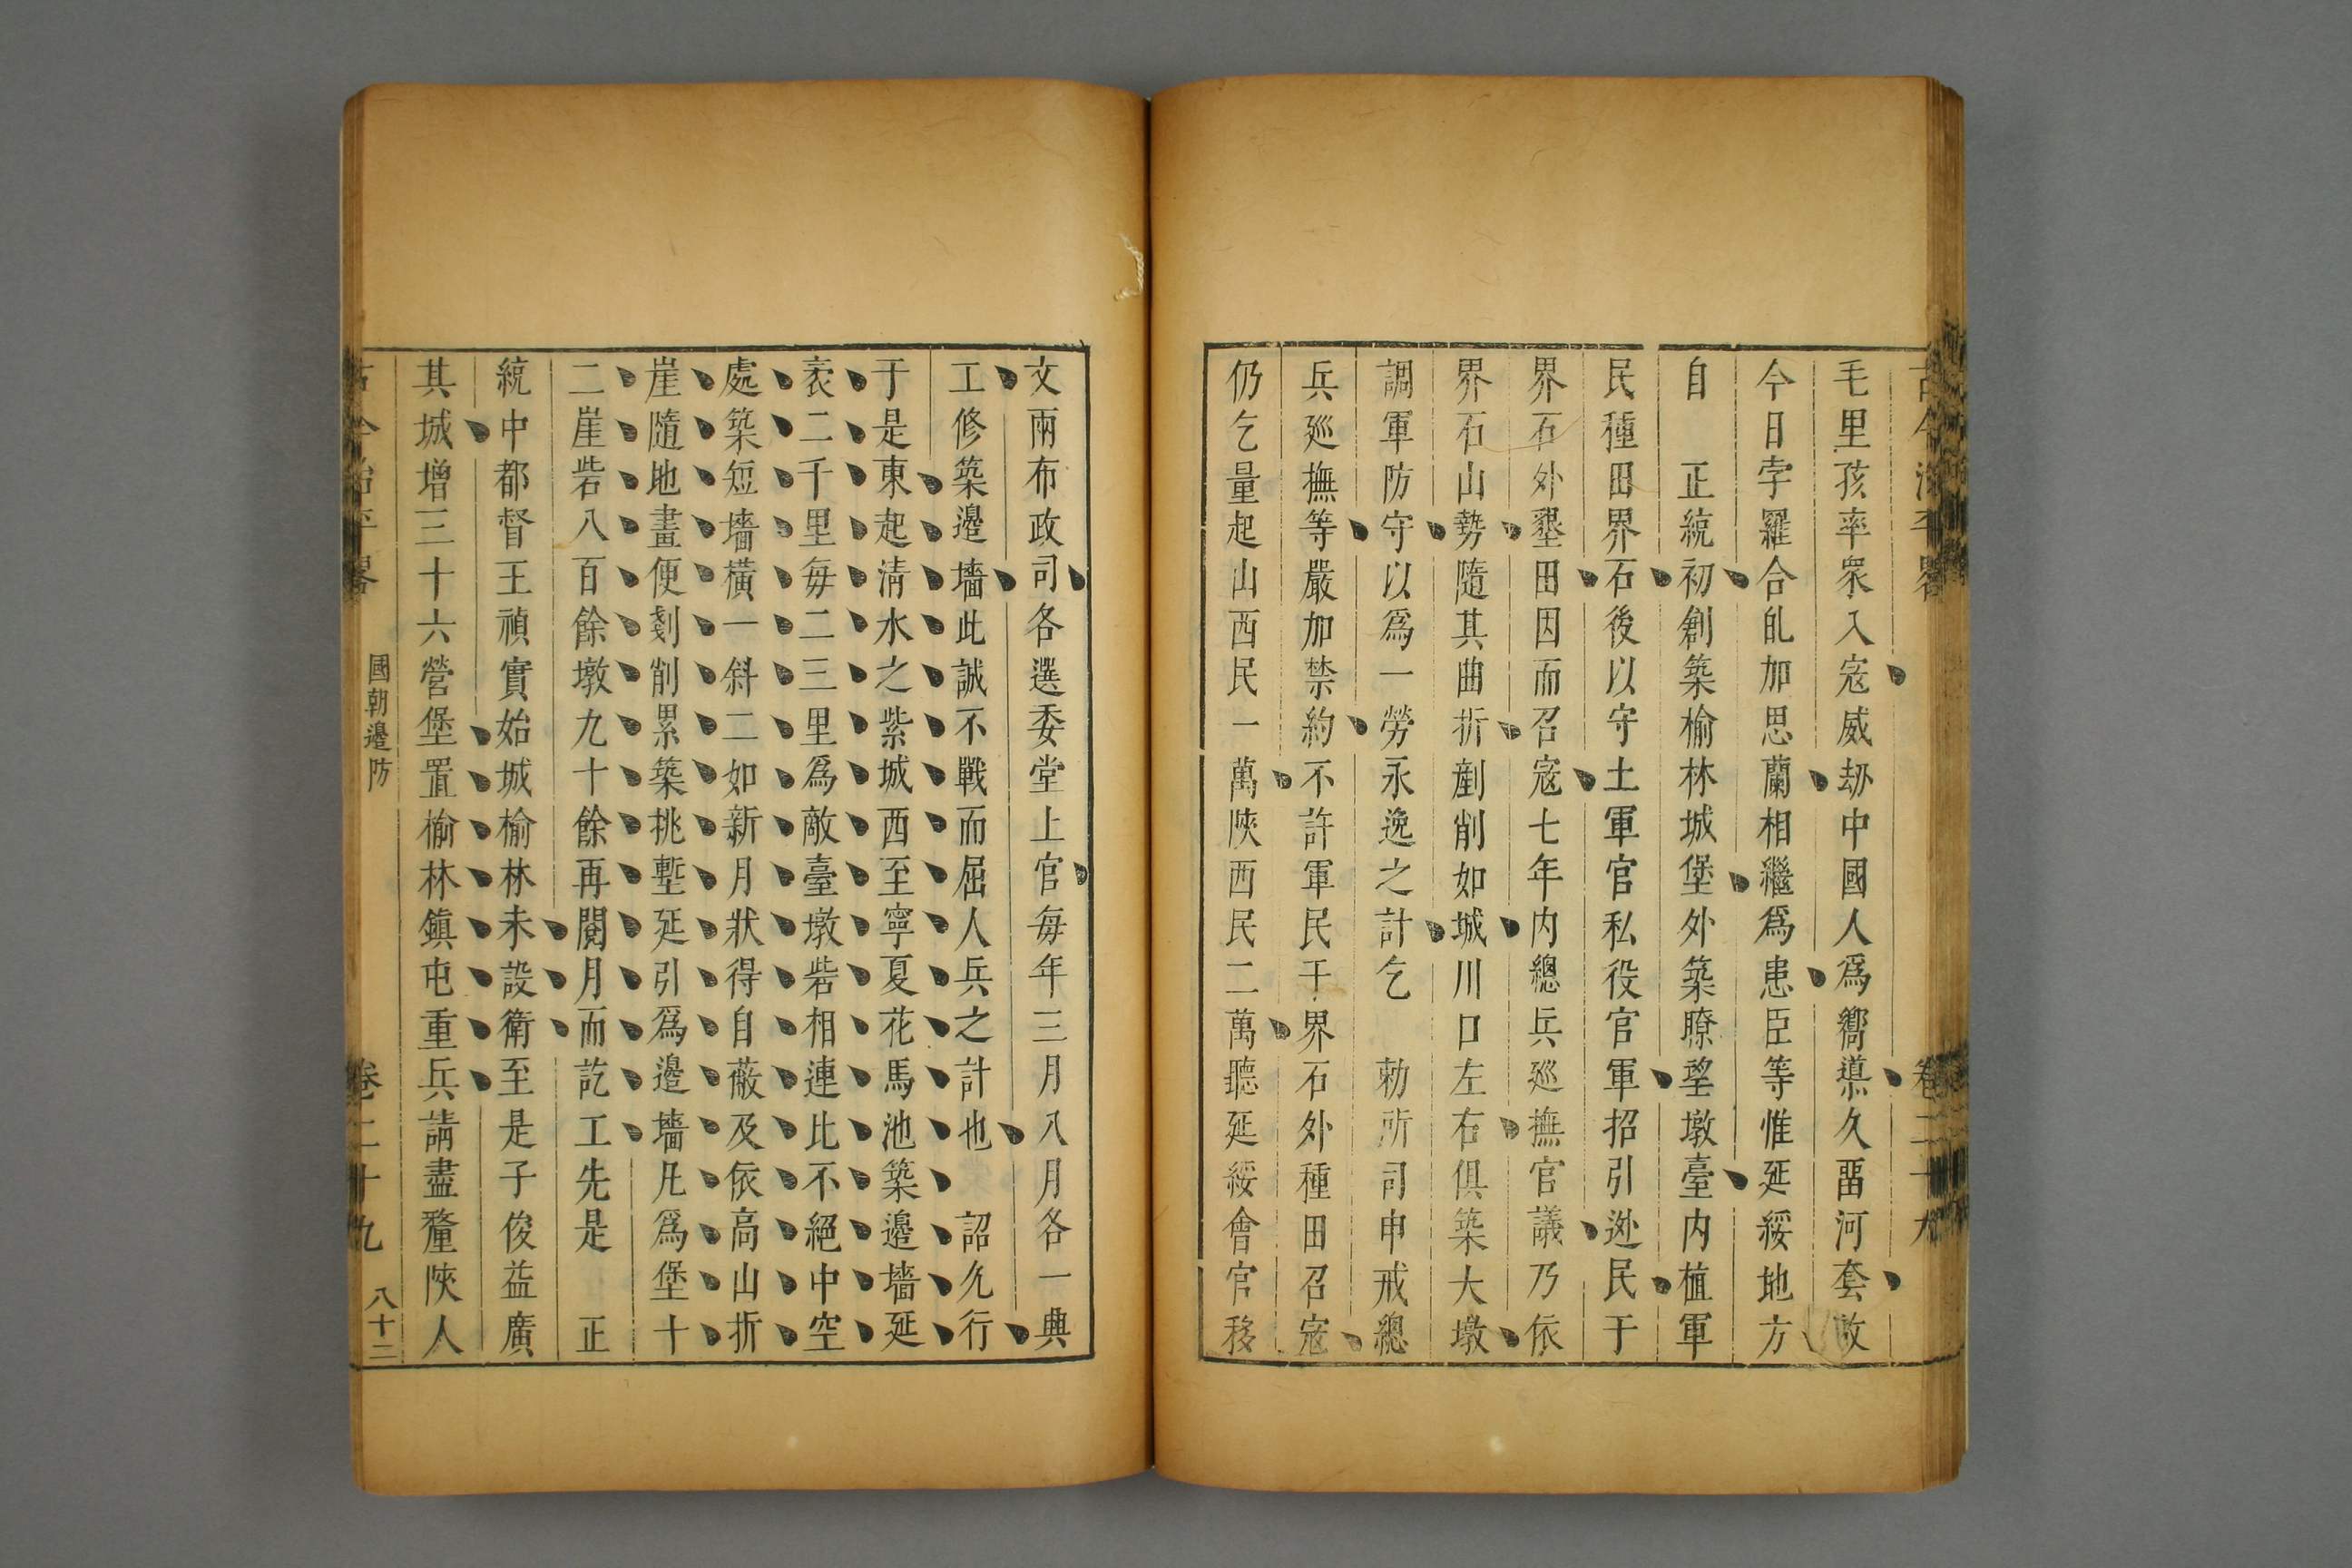 古今治平畧
卷二十九
毛里孩率衆入寇威刼中國人爲嚮導久畱河套故
今日孛羅合乩加思蘭相繼爲患臣等惟延綏地方
自　正統初創築榆林城堡外築瞭望墩臺内植軍
民種田界石後以守土軍官私役官軍招引逃民于
界石外墾田因而召寇七年内總兵廵撫官議乃依
界石山勢隨其曲折剷削如城川口左右俱築大墩
調軍防守以爲一勞永逸之計乞　勅所司申戒總
兵廵撫等嚴加禁約不許軍民于界石外種田召寇
仍乞量起山西民一萬陝西民二萬聽延綏會官移
文兩布政司各選委堂上官每年三月八月各一典
工修築邊墻此誠不戰而屈人兵之計也　詔允行
于是東起淸水之紫城西至寧夏花馬池築邊墻延
袤二千里每二三里爲敵臺墩砦相連比不絕中空
處築短墻橫一斜二如新月狀得自蔽及依高山折
崖隨地畫便剗削累築挑塹延引爲邊墻凡爲堡十
二崖砦八百餘墩九十餘再閱月而訖工先是　正
統中都督王禎實始城榆林未設衛至是子俊益廣
其城增三十六營堡置榆林鎮屯重兵請盡釐陝人
古今治平畧
國朝邊防
卷二十九
八十二